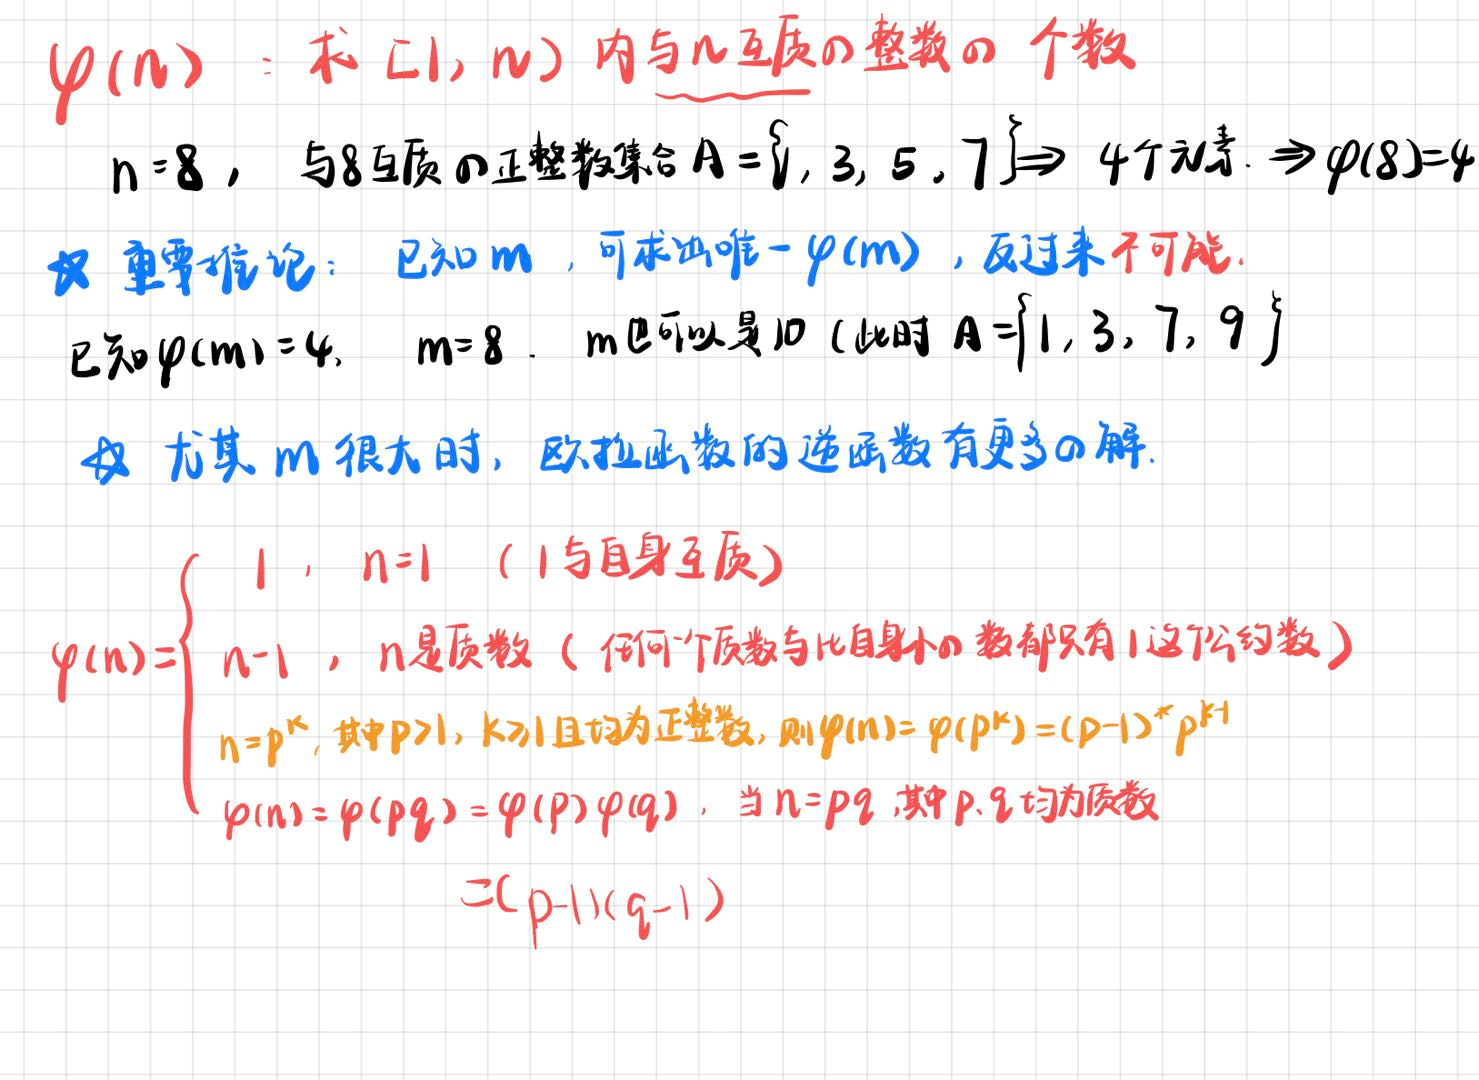 φ(n) : 求[1, n) 内与n互质の整数の个数
n=8, 与8互质の正整数集合A={1, 3, 5, 7}⇒ 4个元素. ⇒φ(8)=4
☆ 重要推论: 已知m, 可求出唯一φ(m), 反过来不可能.
已知φ(m)=4, m=8. m也可以是10 (此时 A={1, 3, 7, 9}
☆ 尤其m很大时, 欧拉函数的逆函数有更多の解.
1, n=1 (1与自身互质)
φ(n)={ n-1, n是质数 (任何一个质数与比自身小の数都只有1这个公约数)
n=p^k, 其中p>1, k≥1且均为正整数, 则φ(n)=φ(p^k)=(p-1)*p^{k-1}
φ(n)=φ(pq)=φ(p)φ(q), 当n=pq, 其中p、q均为质数
=(p-1)(q-1)